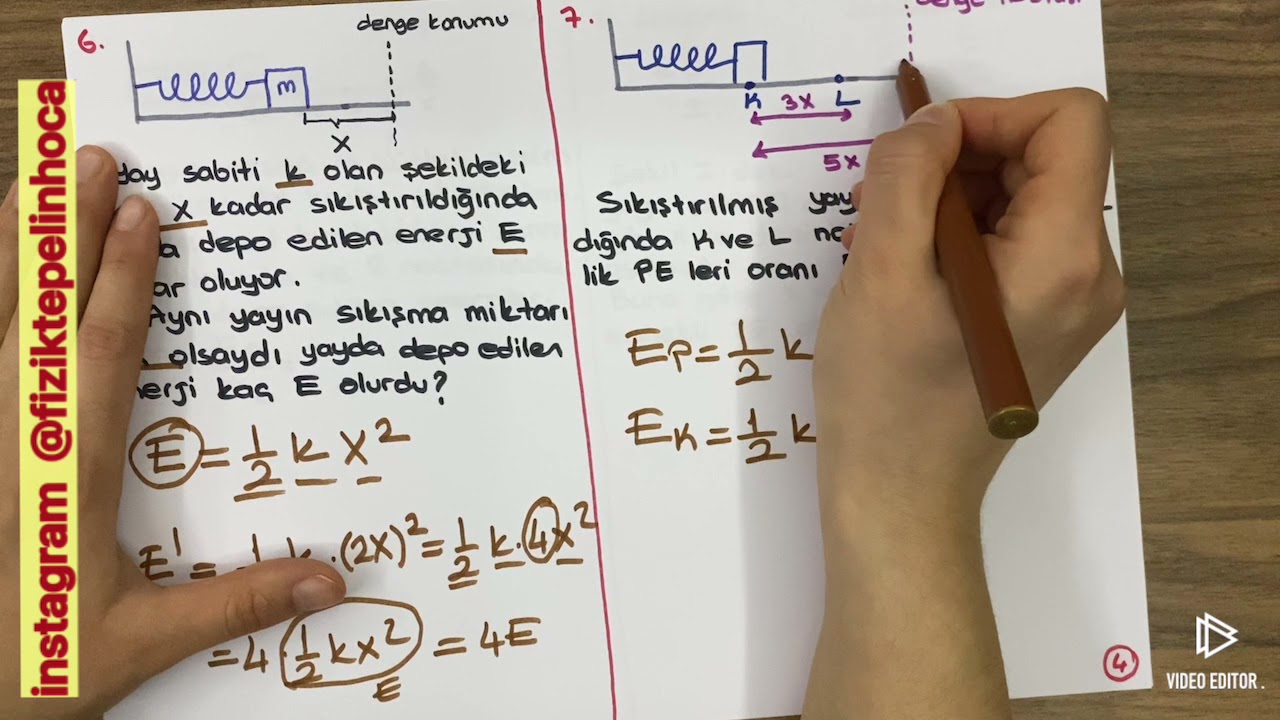 instagram @fiziktepelinhoca
6.
denge konumu
m
x
yay sabiti k olan şekildeki
x kadar sıkıştırıldığında
depo edilen enerji E
oluyor.
Aynı yayın sıkışma miktarı
olsaydı yayda depo edilen
enerji kaç E olurdu?
E = 1/2 k x²
E' = 1/2 k.(2x)² = 1/2 k.4x²
= 4 1/2 kx² = 4E
E
7.
denge
K 3x L
5x
Sıkıştırılmış
dığında K ve L
lik PE leri oranı
Ep = 1/2 k
EK = 1/2 k
4
VIDEO EDITOR.